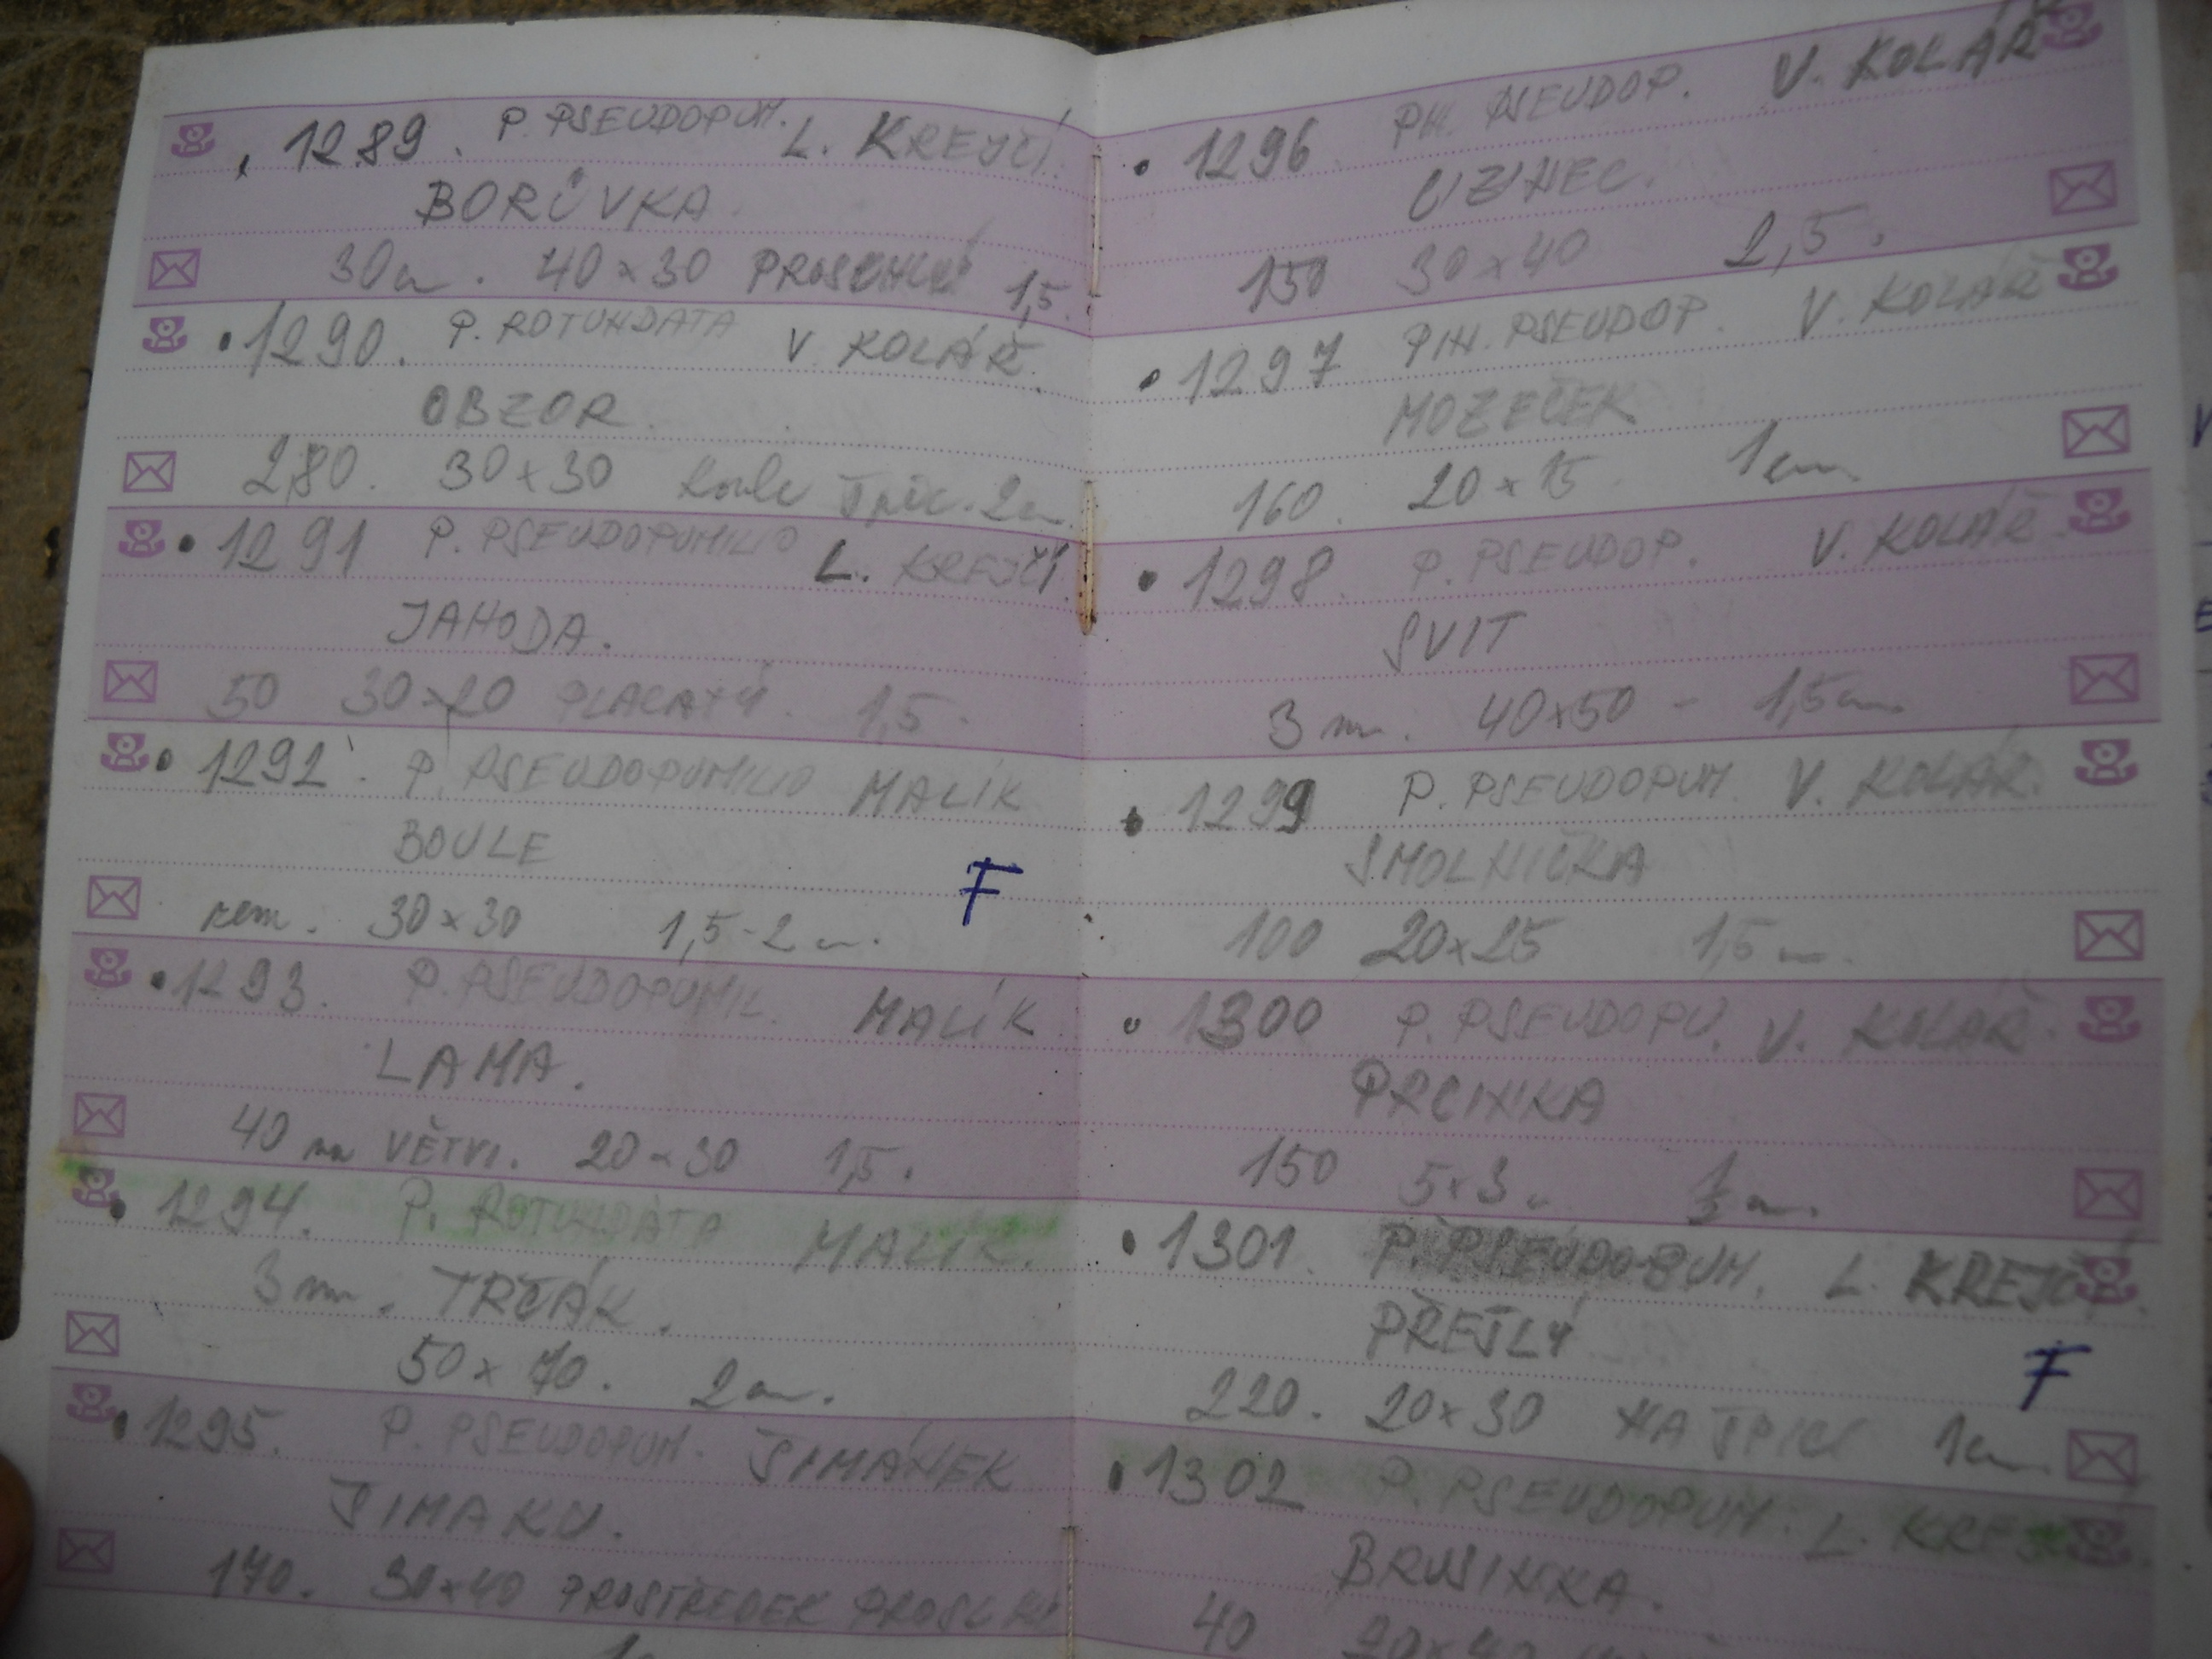 1289. P. PSEUDOPUM. L. KREJČÍ.
BORŮVKA.
30 40 x 30 1,5.
1290. P. ROTUNDATA V. KOLÁŘ.
OBZOR.
280. 30 x 30 2
1291 P. PSEUDOPUMILIO L. KREJČÍ.
JAHODA.
50 30 x 20 PLACATÝ. 1,5.
1292. P. PSEUDOPUMILIO MALÍK
BOULE
F
30 x 30 1,5-2
1293. P. PSEUDOPUMIL. MALÍK
LAMA.
40 VĚTVI. 20 x 30 1,5.
1294. P. ROTUNDATA MALÍK.
3 TRČÁK.
50 x 2
1295. P. PSEUDOPUM. ŠIMÁNEK
ŠIMAKU.
170. 30 x 40 PROSTŘEDEK
1296 PH. PSEUDOP. V. KOLÁŘ
CIZINEC.
150 30 x 40 2,5.
1297 PH. PSEUDOP. V. KOLÁŘ
MOZEČEK
160. 20 x 15 1 cm
1298. P. PSEUDOP. V. KOLÁŘ.
SVIT
3 . 40 x 50 - 1,5 cm
1299 P. PSEUDOPUM. V. KOLÁŘ.
SMOLNIČKA
100 20 x 25 1,5
1300 P. PSEUDOPU. V. KOLÁŘ.
PRCINKA
150 5 x 3
1301. P. PSEUDOPUM. L. KREJČÍ.
PŘEŠLÝ
F
220. 20 x 30 NA ŠPICI 1
1302 P. PSEUDOPUM. L.
BRUSINKA.
40